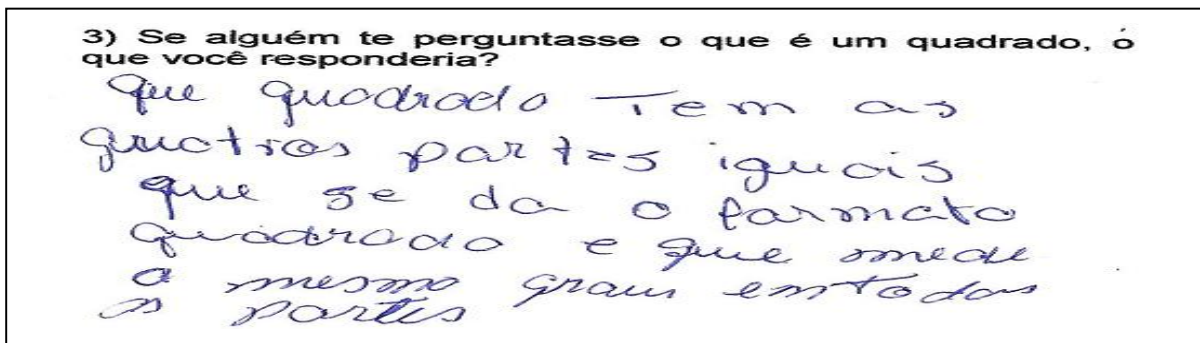 3) Se alguém te perguntasse o que é um quadrado, o
que você responderia?
Que quadrado Tem as
quatros partes iguais
que se da o formato
quadrado e que mede
o mesmo graus em todas
as partes